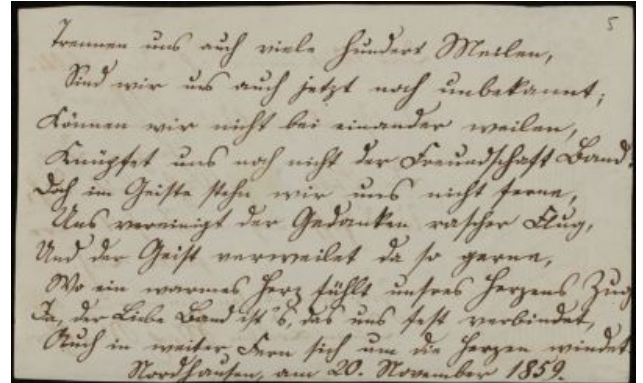 5
Trennen uns auch viele hundert Meilen,
Sind wir uns auch jetzt noch unbekannt;
Können wir nicht bei einander weilen,
Knüpfet uns noch nicht der Freundschaft Band.
Doch im Geiste stehn wir uns nicht ferne,
Uns vereinigt der Gedanken rascher Flug,
Und der Geist verweilet da so gerne,
Wo ein warmes Herz fühlt unsres Herzens Zug
Ja, der Liebe Band ist's, das uns fest verbindet,
Auch in weiter Fern sich um die Herzen windet.
Nordhausen, am 20. November 1859.